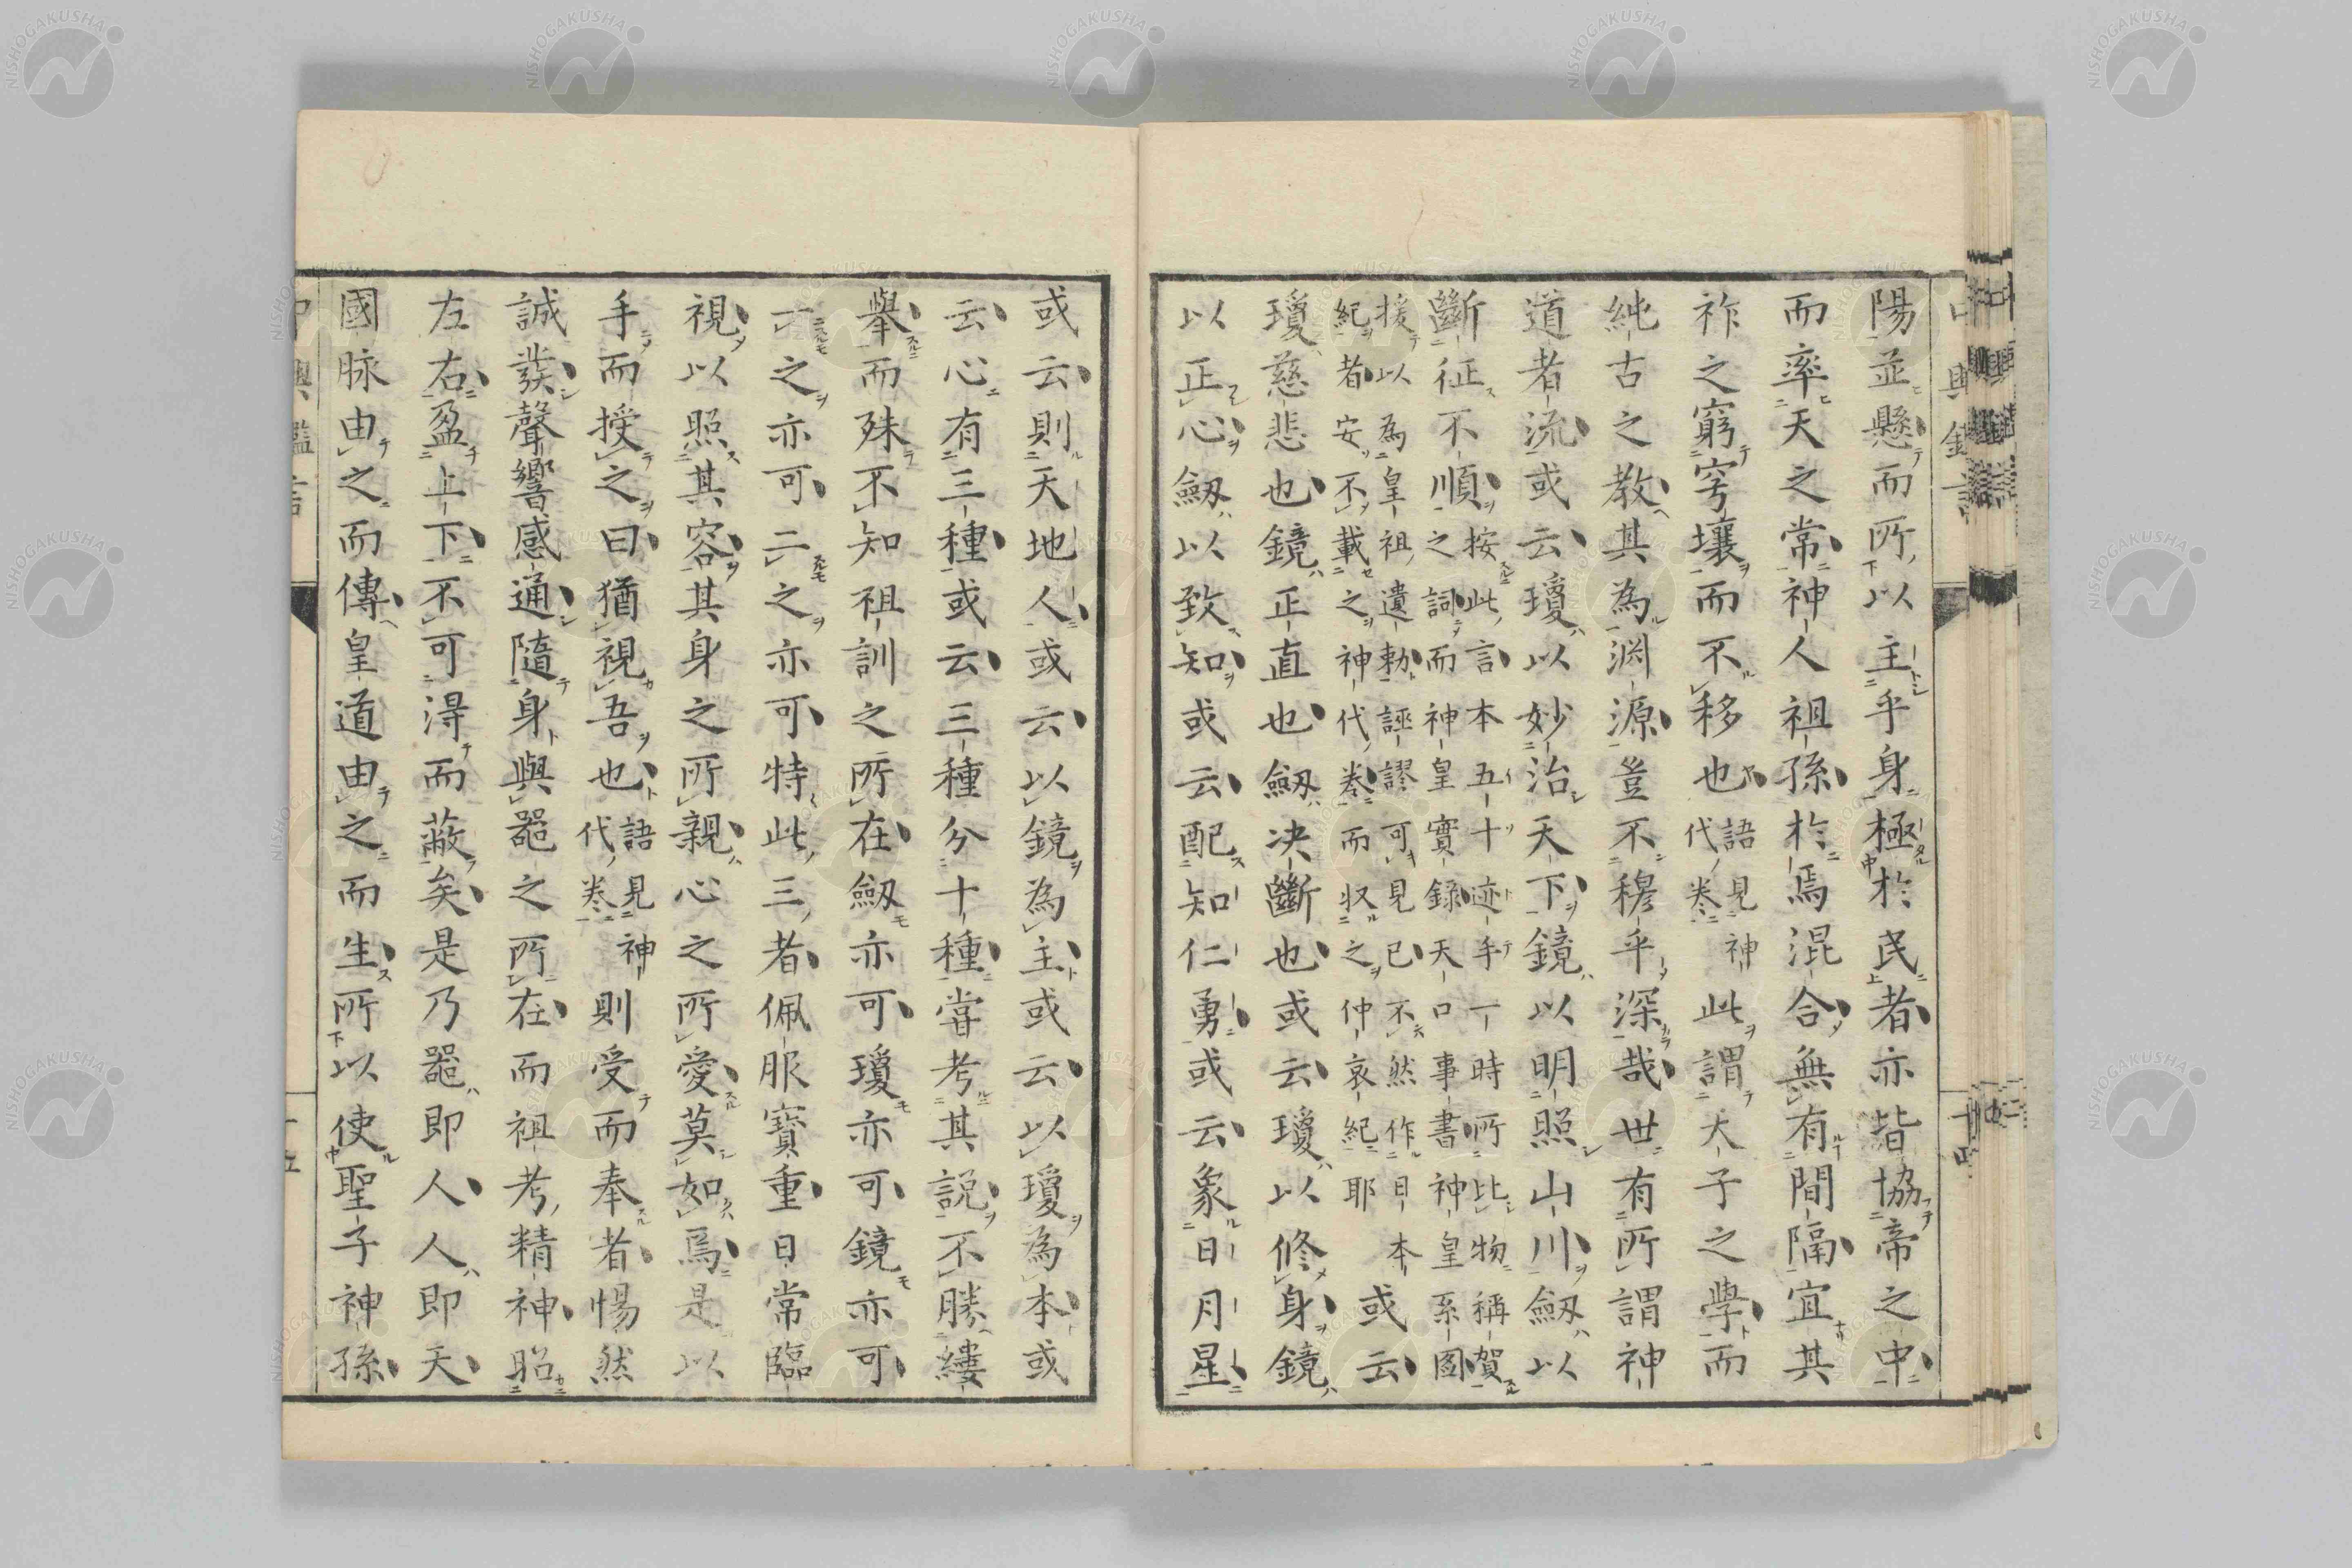 陽並懸而所以主乎身極於民者亦皆協帝之中
而率天之常神人祖孫於焉混合無有間隔宜其
祚之窮穹壤而不移也語見神代卷此謂天子之學而
純古之教其為渊源豈不穆乎深哉世有所謂神
道者流或云瓊以妙治天下鏡以明照山川劔以
斷征不順按此言本五十迹手一時所比物稱賀之詞而神皇實錄天口事書神皇系圖
援以為皇祖遺勅誣謬可見已不然作日本紀者安不載之神代卷而収之仲哀紀耶或云
瓊慈悲也鏡正直也劔决斷也或云瓊以修身鏡
以正心劔以致知或云配知仁勇或云象日月星
或云則天地人或云以鏡為主或云以瓊為本或
云心有三種或云三種分十種嘗考其説不勝縷
擧而殊不知祖訓之所在劔亦可瓊亦可鏡亦可
一之亦可二之亦可特此三者佩服寳重日常臨
視以照其容其身之所親心之所愛莫如焉是以
手而授之曰猶視吾也語見神代卷則受而奉者惕然
誠發聲響感通隨身與噐之所在而祖考精神昭
左右盈上下不可得而蔽矣是乃噐即人人即天
國脉由之而傳皇道由之而生所以使聖子神孫
NISHOGAKUSHA